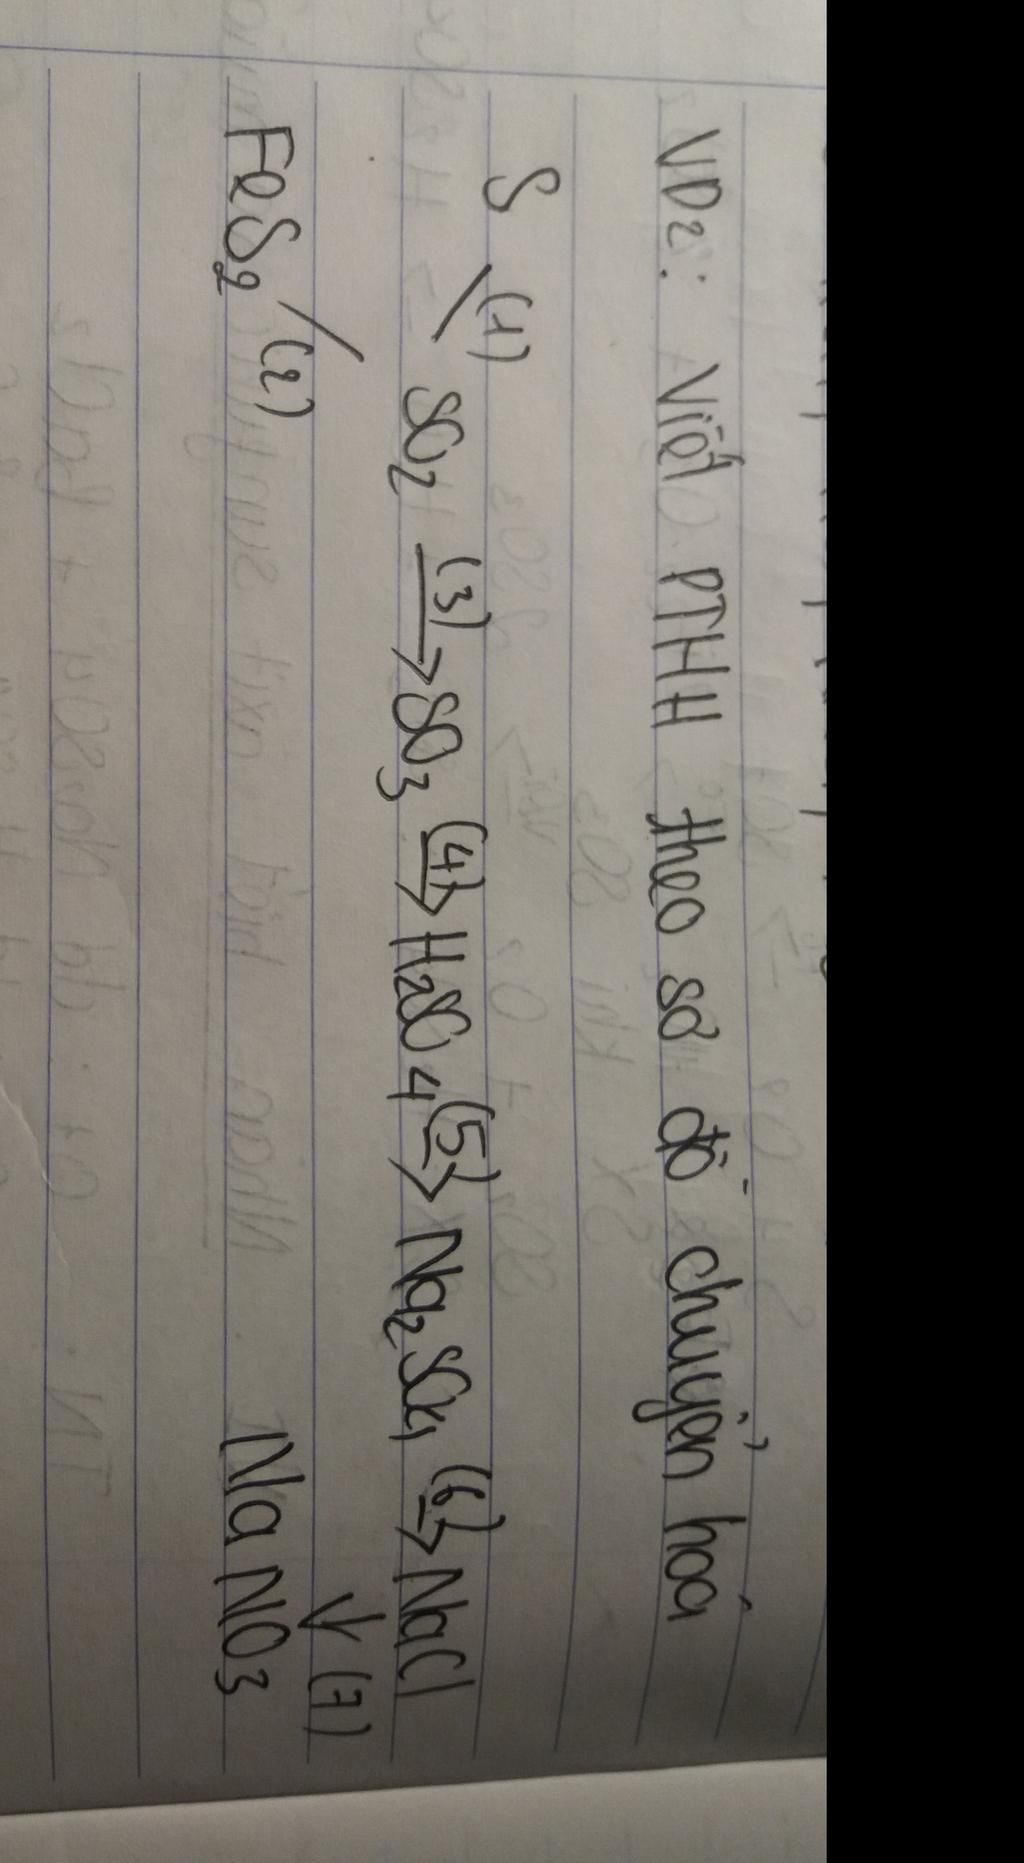 VD2: Viết PTHH theo sơ đồ chuyển hoá
S (1)
SO2 (3)→ SO3 (4)→ H2SO4 (5)→ Na2SO4 (6)→ NaCl
(2) ↓ (7)
FeS2 NaNO3